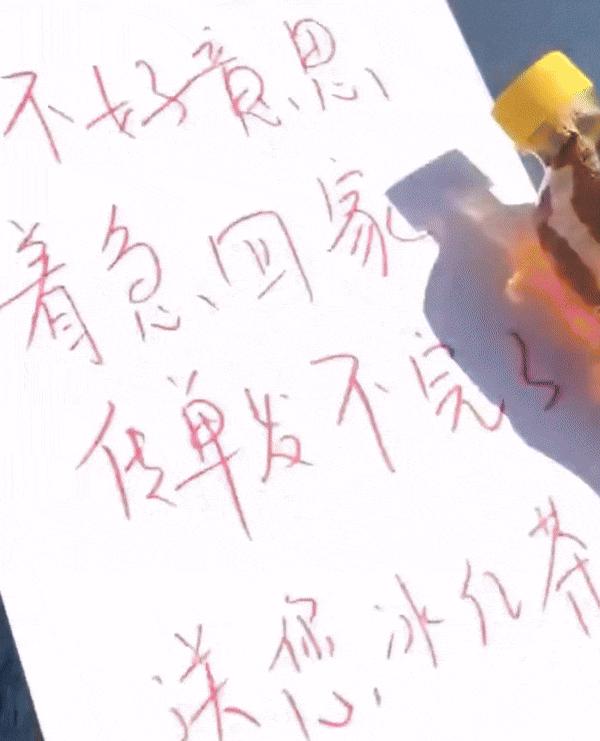 不好意思
着急回家
传单发不完了
送您冰红茶